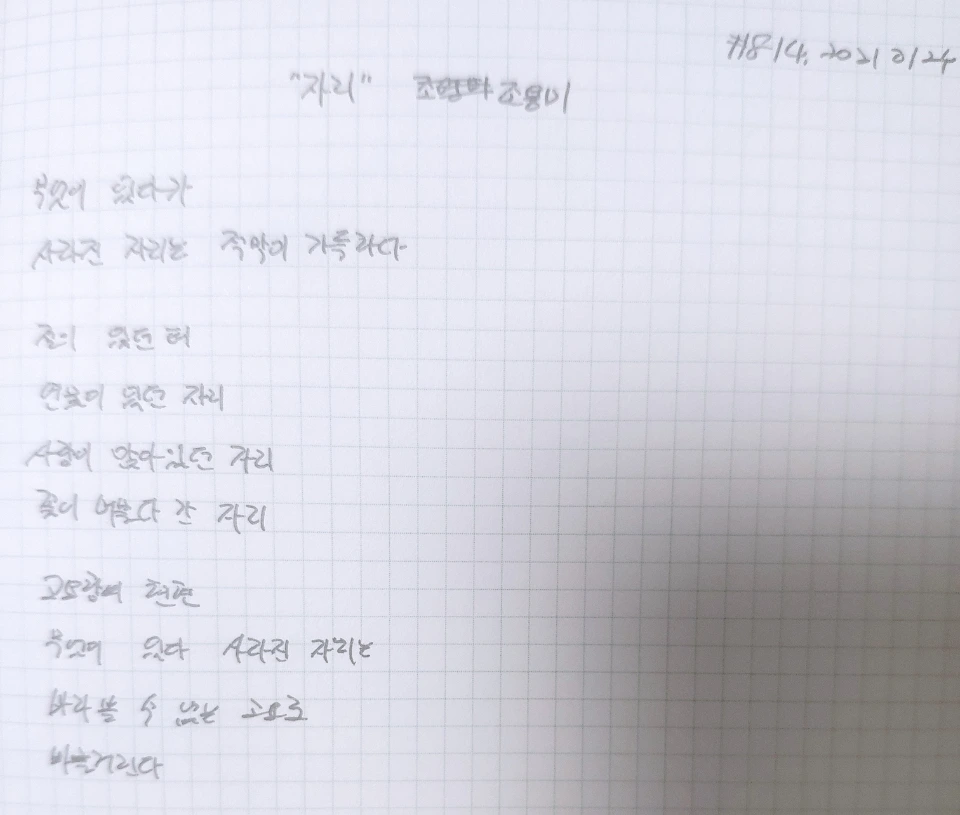 #814. 2021 2/24
"자리" 조용미
무엇이 있다가
사라진 자리는 적막이 가득하다
절이 있던 터
연못이 있던 자리
사람이 앉아 있던 자리
꽃이 머물다 간 자리
고요함의 현현
무엇이 있다 사라진 자리는
바라볼 수 없는 고요로
바글거린다